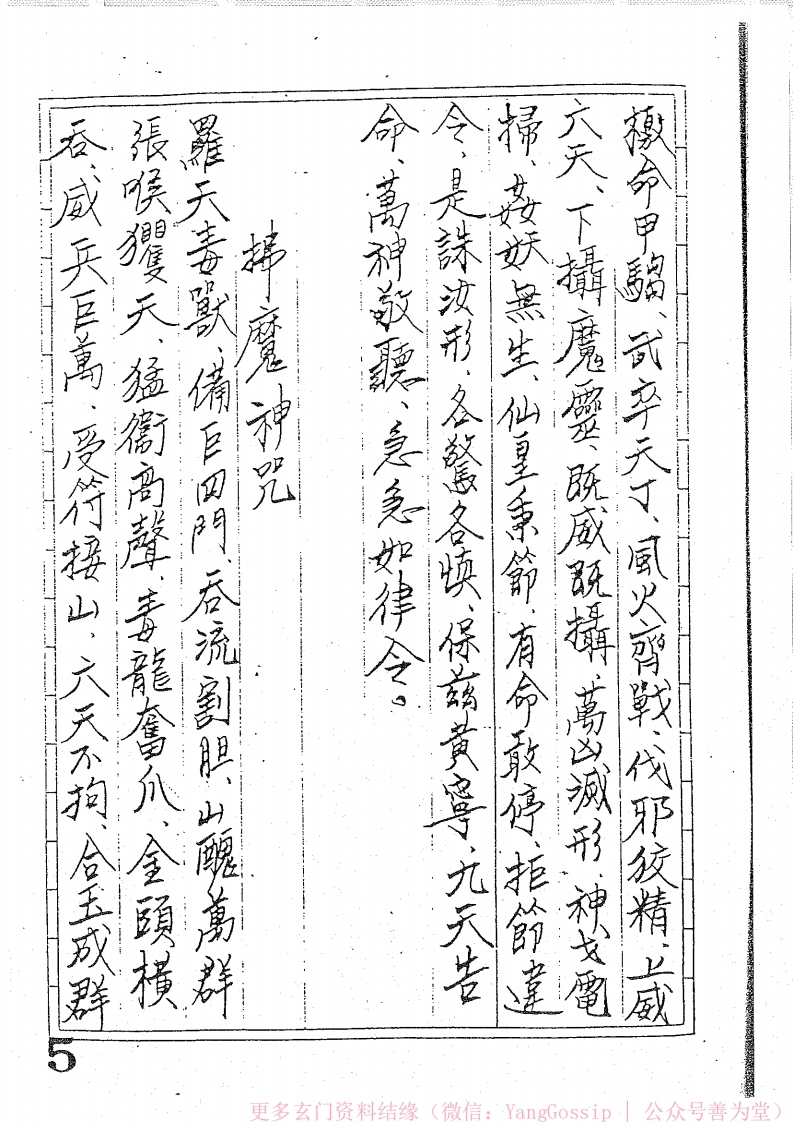 檄命甲騶、武卒天丁、風火齊戰、伐邪狡精、上威
六天、下攝魔靈、既威既攝、萬凶滅形、神戈電
掃、姦妖無生、仙皇秉節、有命敢停、拒節違
令、是誅汝形、各驚各慎、保茲黃寧、九天告
命、萬神敬聽、急急如律令。
掃魔神咒
羅天毒獸、備巨四門、吞流割胆、山醜萬群
張喉玃天、猛衞高聲、毒龍奮爪、金頭橫
吞、威兵巨萬、受符接山、六天不拘、合玉成群
5
更多玄门资料结缘（微信：YangGossip | 公众号善为堂）